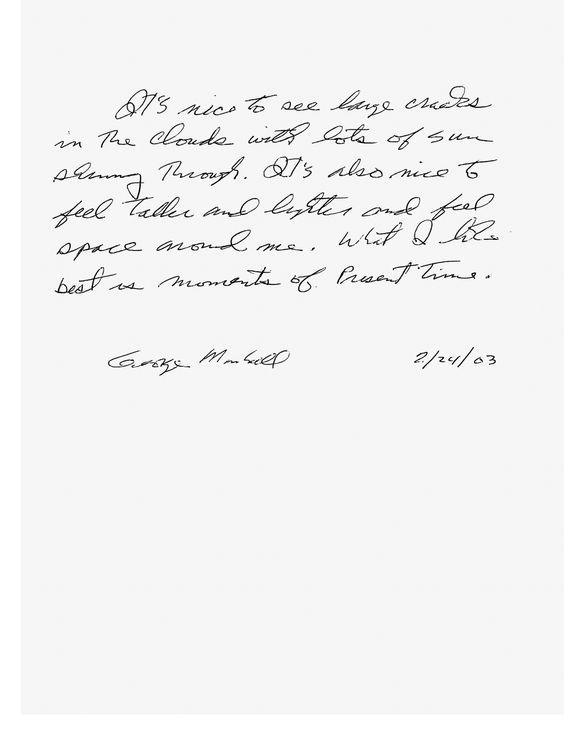 It's nice to see large cracks
in the clouds with lots of sun
shining through. It's also nice to
feel taller and lighter and feel
space around me. What I like
best is moments of Present Time.
George 2/24/03